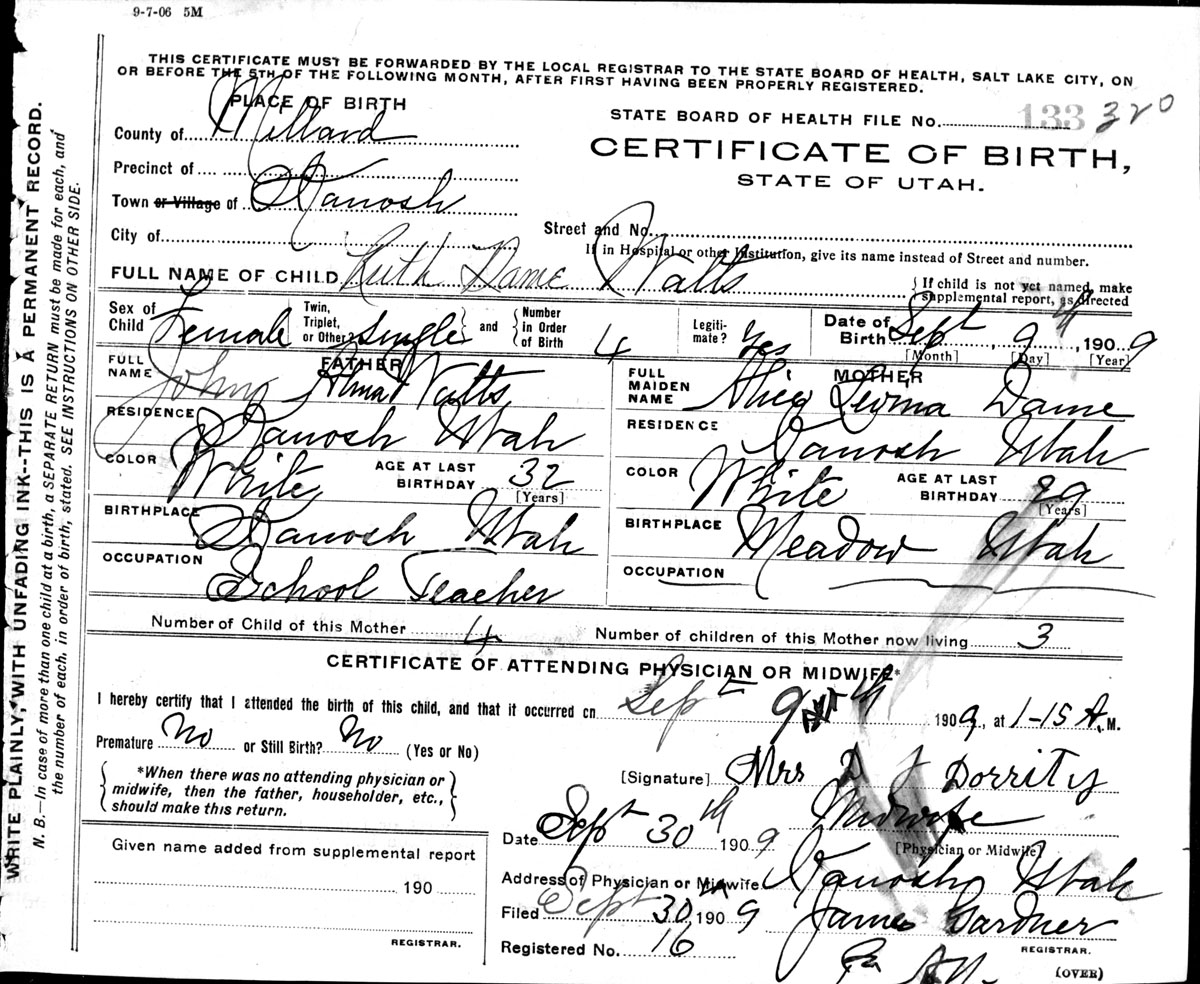 9-7-06 5M
THIS CERTIFICATE MUST BE FORWARDED BY THE LOCAL REGISTRAR TO THE STATE BOARD OF HEALTH, SALT LAKE CITY, ON
OR BEFORE THE 5TH OF THE FOLLOWING MONTH, AFTER FIRST HAVING BEEN PROPERLY REGISTERED.
PLACE OF BIRTH
County of Millard
Precinct of
Town or Village of Kanosh
City of
STATE BOARD OF HEALTH FILE No. 133 320
CERTIFICATE OF BIRTH,
STATE OF UTAH.
Street and No.
If in Hospital or other Institution, give its name instead of Street and number.
FULL NAME OF CHILD Ruth Dame Watts
{If child is not yet named, make supplemental report, as directed
Sex of Child Female Twin, Triplet, or Other? Single} and {Number in Order of Birth 4 Legitimate? Yes Date of Birth Sept 9th, 1909
[Month] [Day] [Year]
FATHER
FULL NAME John Alma Watts
RESIDENCE Kanosh Utah
COLOR White AGE AT LAST BIRTHDAY 32
[Years]
BIRTHPLACE Kanosh Utah
OCCUPATION School Teacher
MOTHER
FULL MAIDEN NAME Alice Dame
RESIDENCE Kanosh Utah
COLOR White AGE AT LAST BIRTHDAY 29
[Years]
BIRTHPLACE Meadow Utah
OCCUPATION
Number of Child of this Mother 4 Number of children of this Mother now living 3
CERTIFICATE OF ATTENDING PHYSICIAN OR MIDWIFE*
I hereby certify that I attended the birth of this child, and that it occurred on Sept 9th 1909, at 1-15 A.M.
Premature No or Still Birth? No (Yes or No)
{*When there was no attending physician or
midwife, then the father, householder, etc.,
should make this return.}
[Signature] Mrs D J Dorrity
Midwife
Date Sept 30th 1909 [Physician or Midwife]
Address of Physician or Midwife Kanosh Utah
Filed Sept 30, 1909 James Gardner
REGISTRAR.
Registered No. 16
(OVER)
Given name added from supplemental report
190
REGISTRAR.
WRITE PLAINLY, WITH UNFADING INK--THIS IS A PERMANENT RECORD.
N. B.—In case of more than one child at a birth, a SEPARATE RETURN must be made for each, and
the number of each, in order of birth, stated. SEE INSTRUCTIONS ON OTHER SIDE.